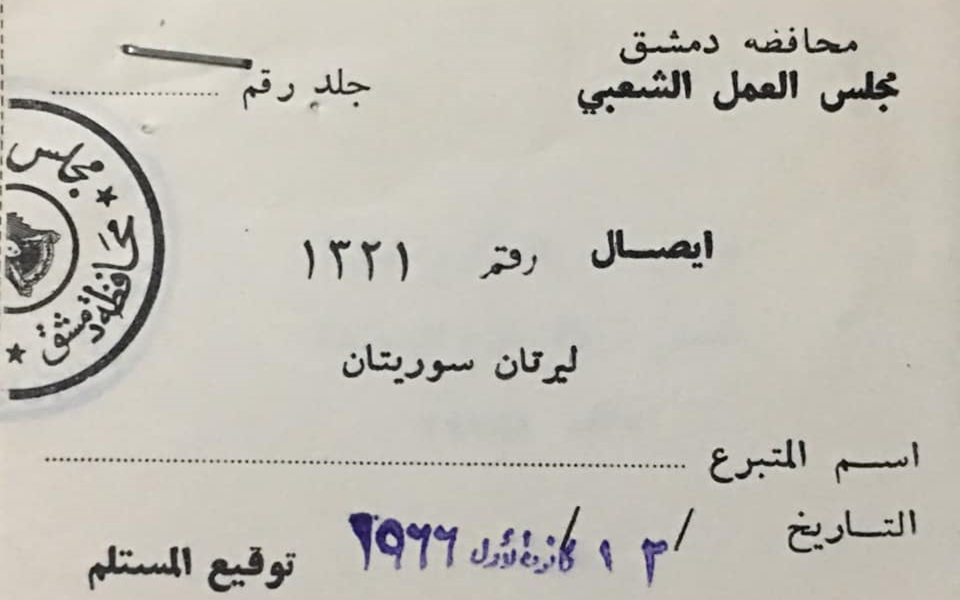 محافضه دمشق
مجلس العمل الشعبي
جلد رقم
ايصال رقم ١٣٢١
ليرتان سوريتان
اسم المتبرع
التاريخ / ١٣ / كانون الأول ١٩٦٦
توقيع المستلم
مجلس
محافظة دمشق